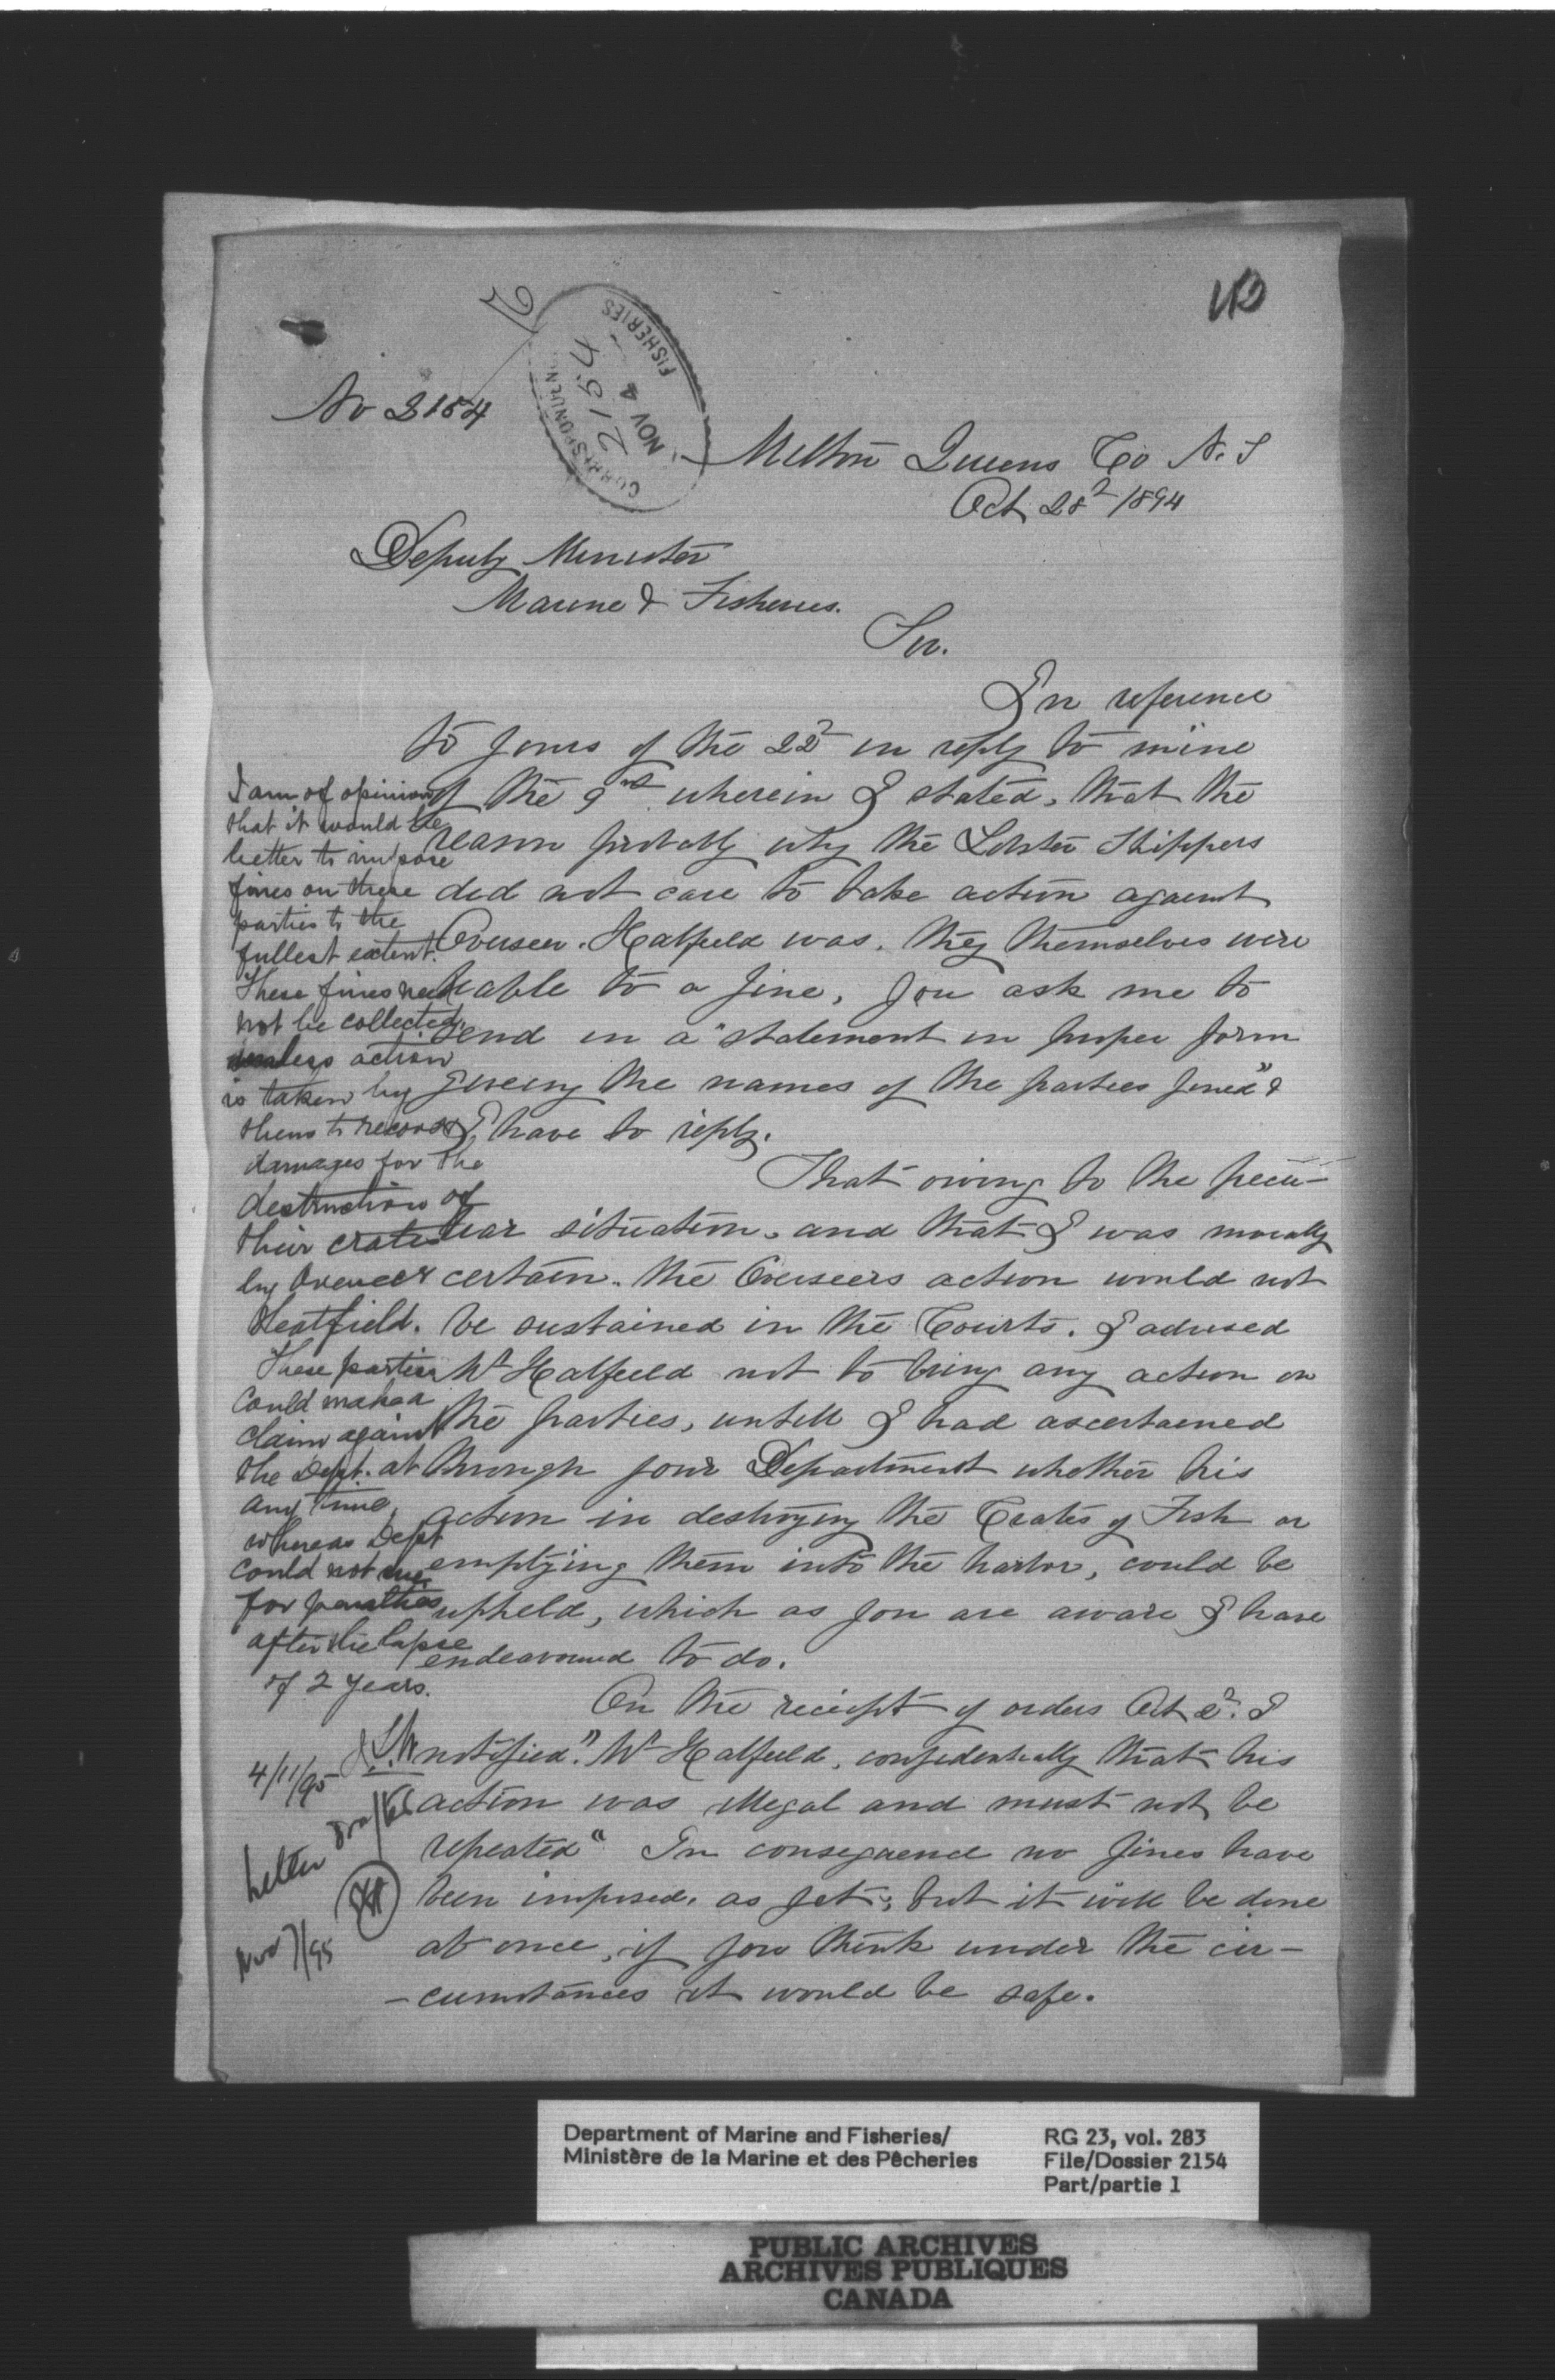 No 2154
CORRESPONDEN
2154
NOV 4
FISHERIES
Milton Queens Co N.S
Oct 28" 1894
Deputy Minister
Marine & Fisheries.
Sir.
In reference
to yours of the 22" in reply to mine
of the 9" wherein I stated, that the
reason probably why the Lobster Shippers
did not care to take action against
Overseer. Hatfield was. they themselves were
liable to a fine, you ask me to
send in a "statement in proper form
giveing the names of the parties fined" &
I have to reply.
That owing to the pecu-
liar situation, and that I was morally
certain. the Overseers action would not
be sustained in the Courts. I advised
Mr Hatfield not to bring any action on
the parties, untill I had ascertained
through your Department whether his
action in destroying the Crates of Fish or
emptying them into the harbor, could be
upheld, which as you are aware I have
endeavoured to do.
On the reciept of orders Oct 2". I
notified" Mr Hatfield, confidentially that his
action was illegal and must not be
repeated" In consequence no fines have
been imposed, as yet, but it will be done
at once, if you think under the cir-
-cumstances it would be safe.
I am of opinion
that it would be
better to impose
fines on these
parties to the
fullest extent.
These fines need
not be collected
unless action
is taken by
them to recover
damages for the
destruction of
their crates
by Overseer
Hatfield.
These parties
could make a
claim against
the Dept. at
any time,
whereas Dept
could not sue
for penalties
after the lapse
of 2 years.
4/11/95
Letter Drafted
Nov 7/95
Department of Marine and Fisheries/
Ministère de la Marine et des Pêcheries
RG 23, vol. 283
File/Dossier 2154
Part/partie 1
PUBLIC ARCHIVES
ARCHIVES PUBLIQUES
CANADA